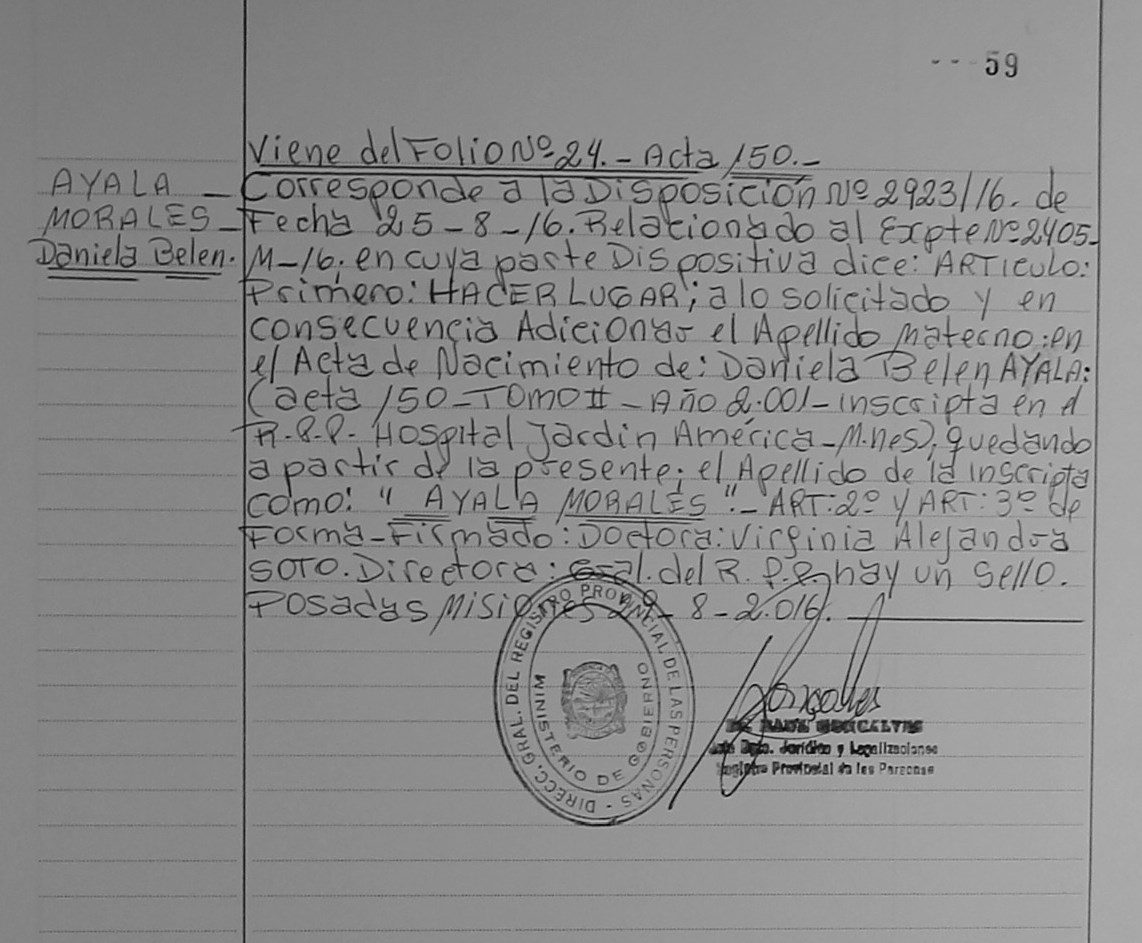 -- 59
Viene del Folio Nº 24.- Acta 150.-
AYALA _ Corresponde a la Disposición Nº 2923/16. de
MORALES _ Fecha 25-8-16. Relacionado al Expte Nº 2405-
Daniela Belen. M-16; en cuya parte Dispositiva dice: ARTICULO:
Primero: HACER LUGAR; a lo solicitado y en
consecuencia Adicionar el Apellido materno: en
el Acta de Nacimiento de: Daniela Belen AYALA:
(acta 150-TOMO II - Año 2.001- inscripta en el
R.P.P. Hospital Jardin América-M.nes), quedando
a partir de la presente; el Apellido de la inscripta
como: " AYALA MORALES ".- ART: 2º y ART: 3º de
Forma-Firmado: Doctora: Virginia Alejandra
SOTO. Directora: Gral. del R. P.P. hay un Sello.
Posadas Misiones 29-8-2.016.
DIRECC. GRAL. DEL REGISTRO PROVINCIAL DE LAS PERSONAS -
MINISTERIO DE GOBIERNO
GONCALVES
Jefe Dpto. Jurídico y Legalizaciones
Registro Provincial de las Personas